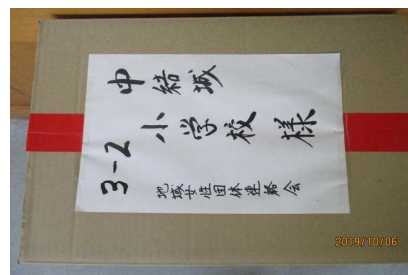 中結城
3-2 小学校 様
地域女性団体連絡会
2019/10/06